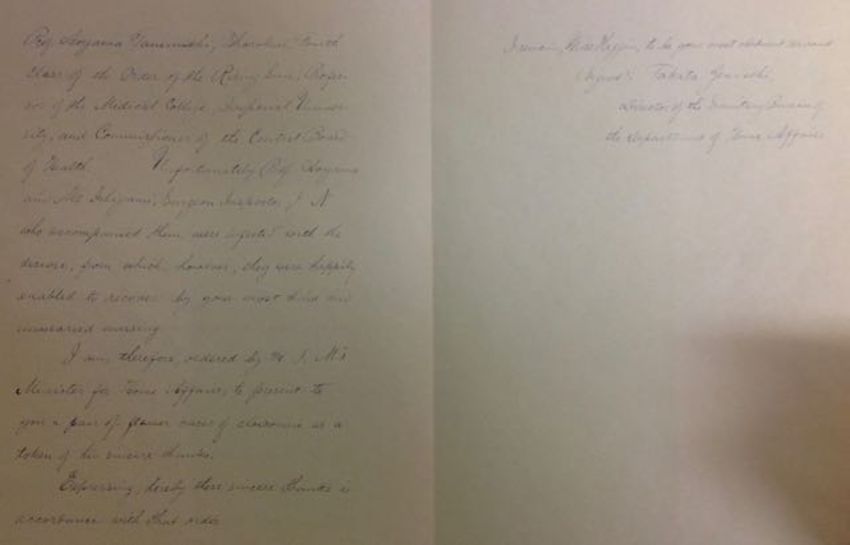 Prof. Aoyama Tanemichi, Shorokui, fourth
class of the Order of the Rising Sun, Profes-
sor of the Medical College, Imperial Univer-
sity, and Commissioner of the Central Board
of Health. Unfortunately Prof. Aoyama
and Mr. Ishigami, Surgeon Inspector, I. N
who accompanied them were infected with the
disease, from which, however, they were happily
enabled to recover by your most kind and
unwearied nursing.
I am, therefore, ordered by H. I. M's
Minister for Home Affairs, to present to
you a pair of flower vases of cloisonne as a
token of his sincere thanks.
Expressing hereby these sincere thanks in
accordance with that order
I remain, Miss Higgin, to be your most obedient servant
Signed: Takata
Director of the Sanitary Bureau of
the department of Home Affairs